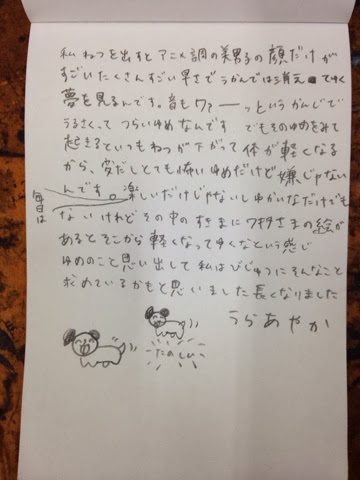 私 ねつを出すとアニメ調の美男子の顔だけが
すごいたくさんすごい早さでうかんでは消えてゆく
夢を見るんです。音もワァーーっというかんじで
うるさくってつらいゆめなんです でもそのゆめをみて
起きるといつもねつが下がって体が軽くなる
から、変だしとても怖いゆめだけど嫌じゃない
んです。
毎日は
楽しいだけじゃないしゆかいなだけでも
ないけれどその中のすきまにワキサカさまの絵が
あるとそこから軽くなってゆくなという感じ
ゆめのこと思い出して私はびじゅつにそんなこと
求めているかもと思いました長くなりました
うらあやか
たのしい